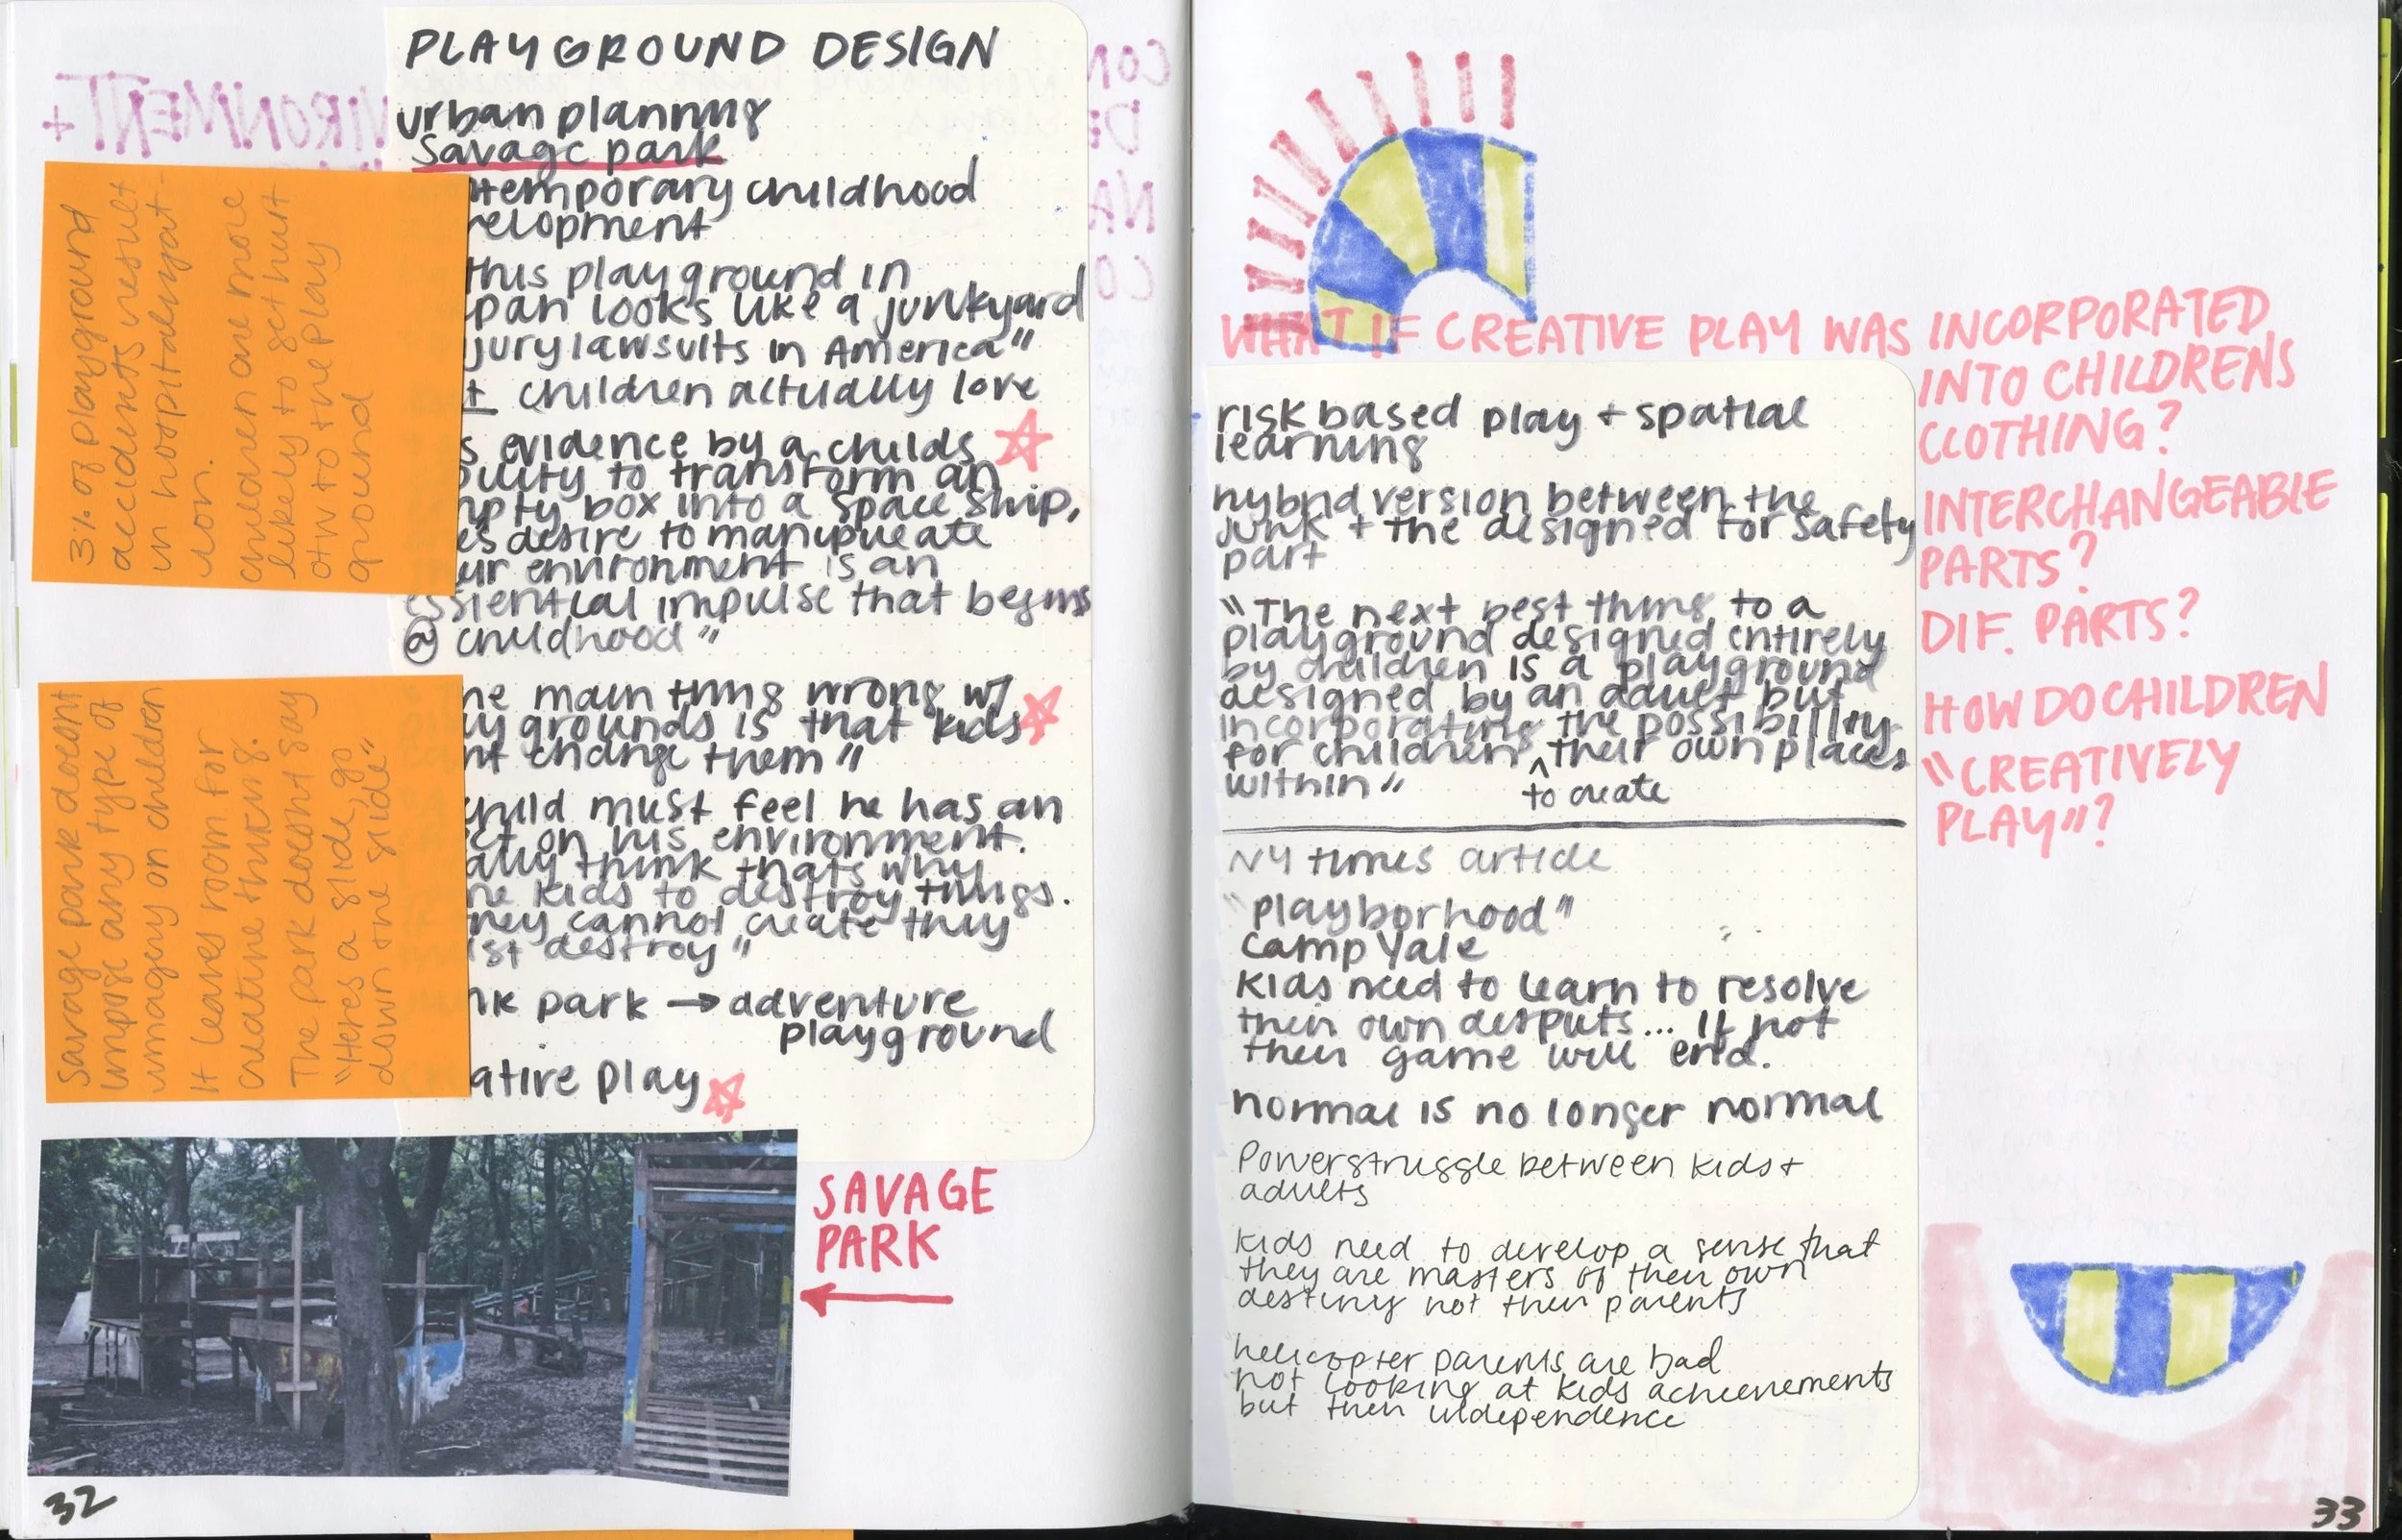 PLAYGROUND DESIGN
urban planning
Savage park
temporary childhood
elopment
this playground in
pan looks like a junkyard
jury lawsuits in America"
+ children actually love
s evidence by a childs
to transform an
pty box into a space ship,
es desire to manipulate
ur environment is an
essiential impulse that begins
@ childhood"
ne main thing wrong w/
y grounds is that kids
nt change them"
child must feel he has an
ct on his environment.
ally think thats why
ne kids to destroy things.
hey cannot create they
st destroy"
nk park → adventure
playground
ative play
3% of playground
accidents result
in hospitalizat-
ion.
children are more
likely to get hurt
otw to the play
ground
Savage park doesnt
impose any type of
imagery on children
It leaves room for
creative thinking.
The park doesnt say
"Heres a slide, go
down the slide"
SAVAGE
PARK
32
WHAT IF CREATIVE PLAY WAS INCORPORATED
INTO CHILDRENS
CLOTHING?
INTERCHANGEABLE
PARTS?
DIF. PARTS?
HOW DO CHILDREN
"CREATIVELY
PLAY"?
risk based play + spatial
learning
hybrid version between the
junk + the designed for safety
part
"The next best thing to a
playground designed entirely
by children is a playground
designed by an adult but
incorporating the possibility
for children ^ their own places
within" to create
NY times article
"playborhood"
camp Yale
kids need to learn to resolve
their own desputs... If not
their game will end.
normal is no longer normal
Powerstruggle between kids +
adults
kids need to develop a sense that
they are masters of their own
destiny not their parents
helicopter parents are bad
not looking at kids achievements
but their independence
33